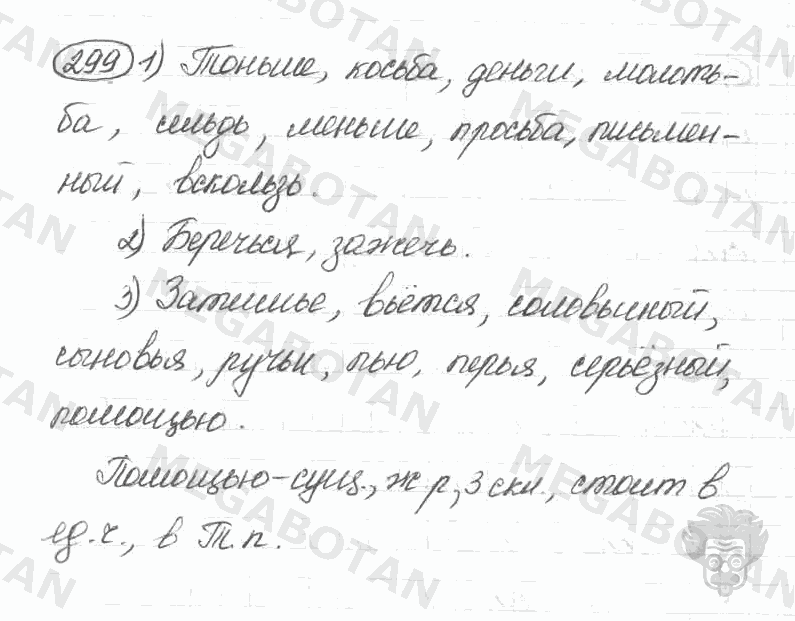 299 1) Тоньше, косьба, деньги, молоть-
ба, сельдь, меньше, просьба, письмен-
ный, вскользь.
2) Беречься, зажечь.
3) Затишье, вьётся, соловьиный,
сыновья, ручьи, пью, перья, серьёзный,
помощью.
Помощью-сущ., ж р, 3 скл., стоит в
ед.ч., в Т.п.
MEGABOTAN